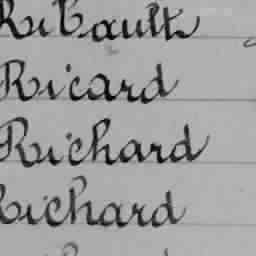 Ribault
Ricard
Richard
Richard